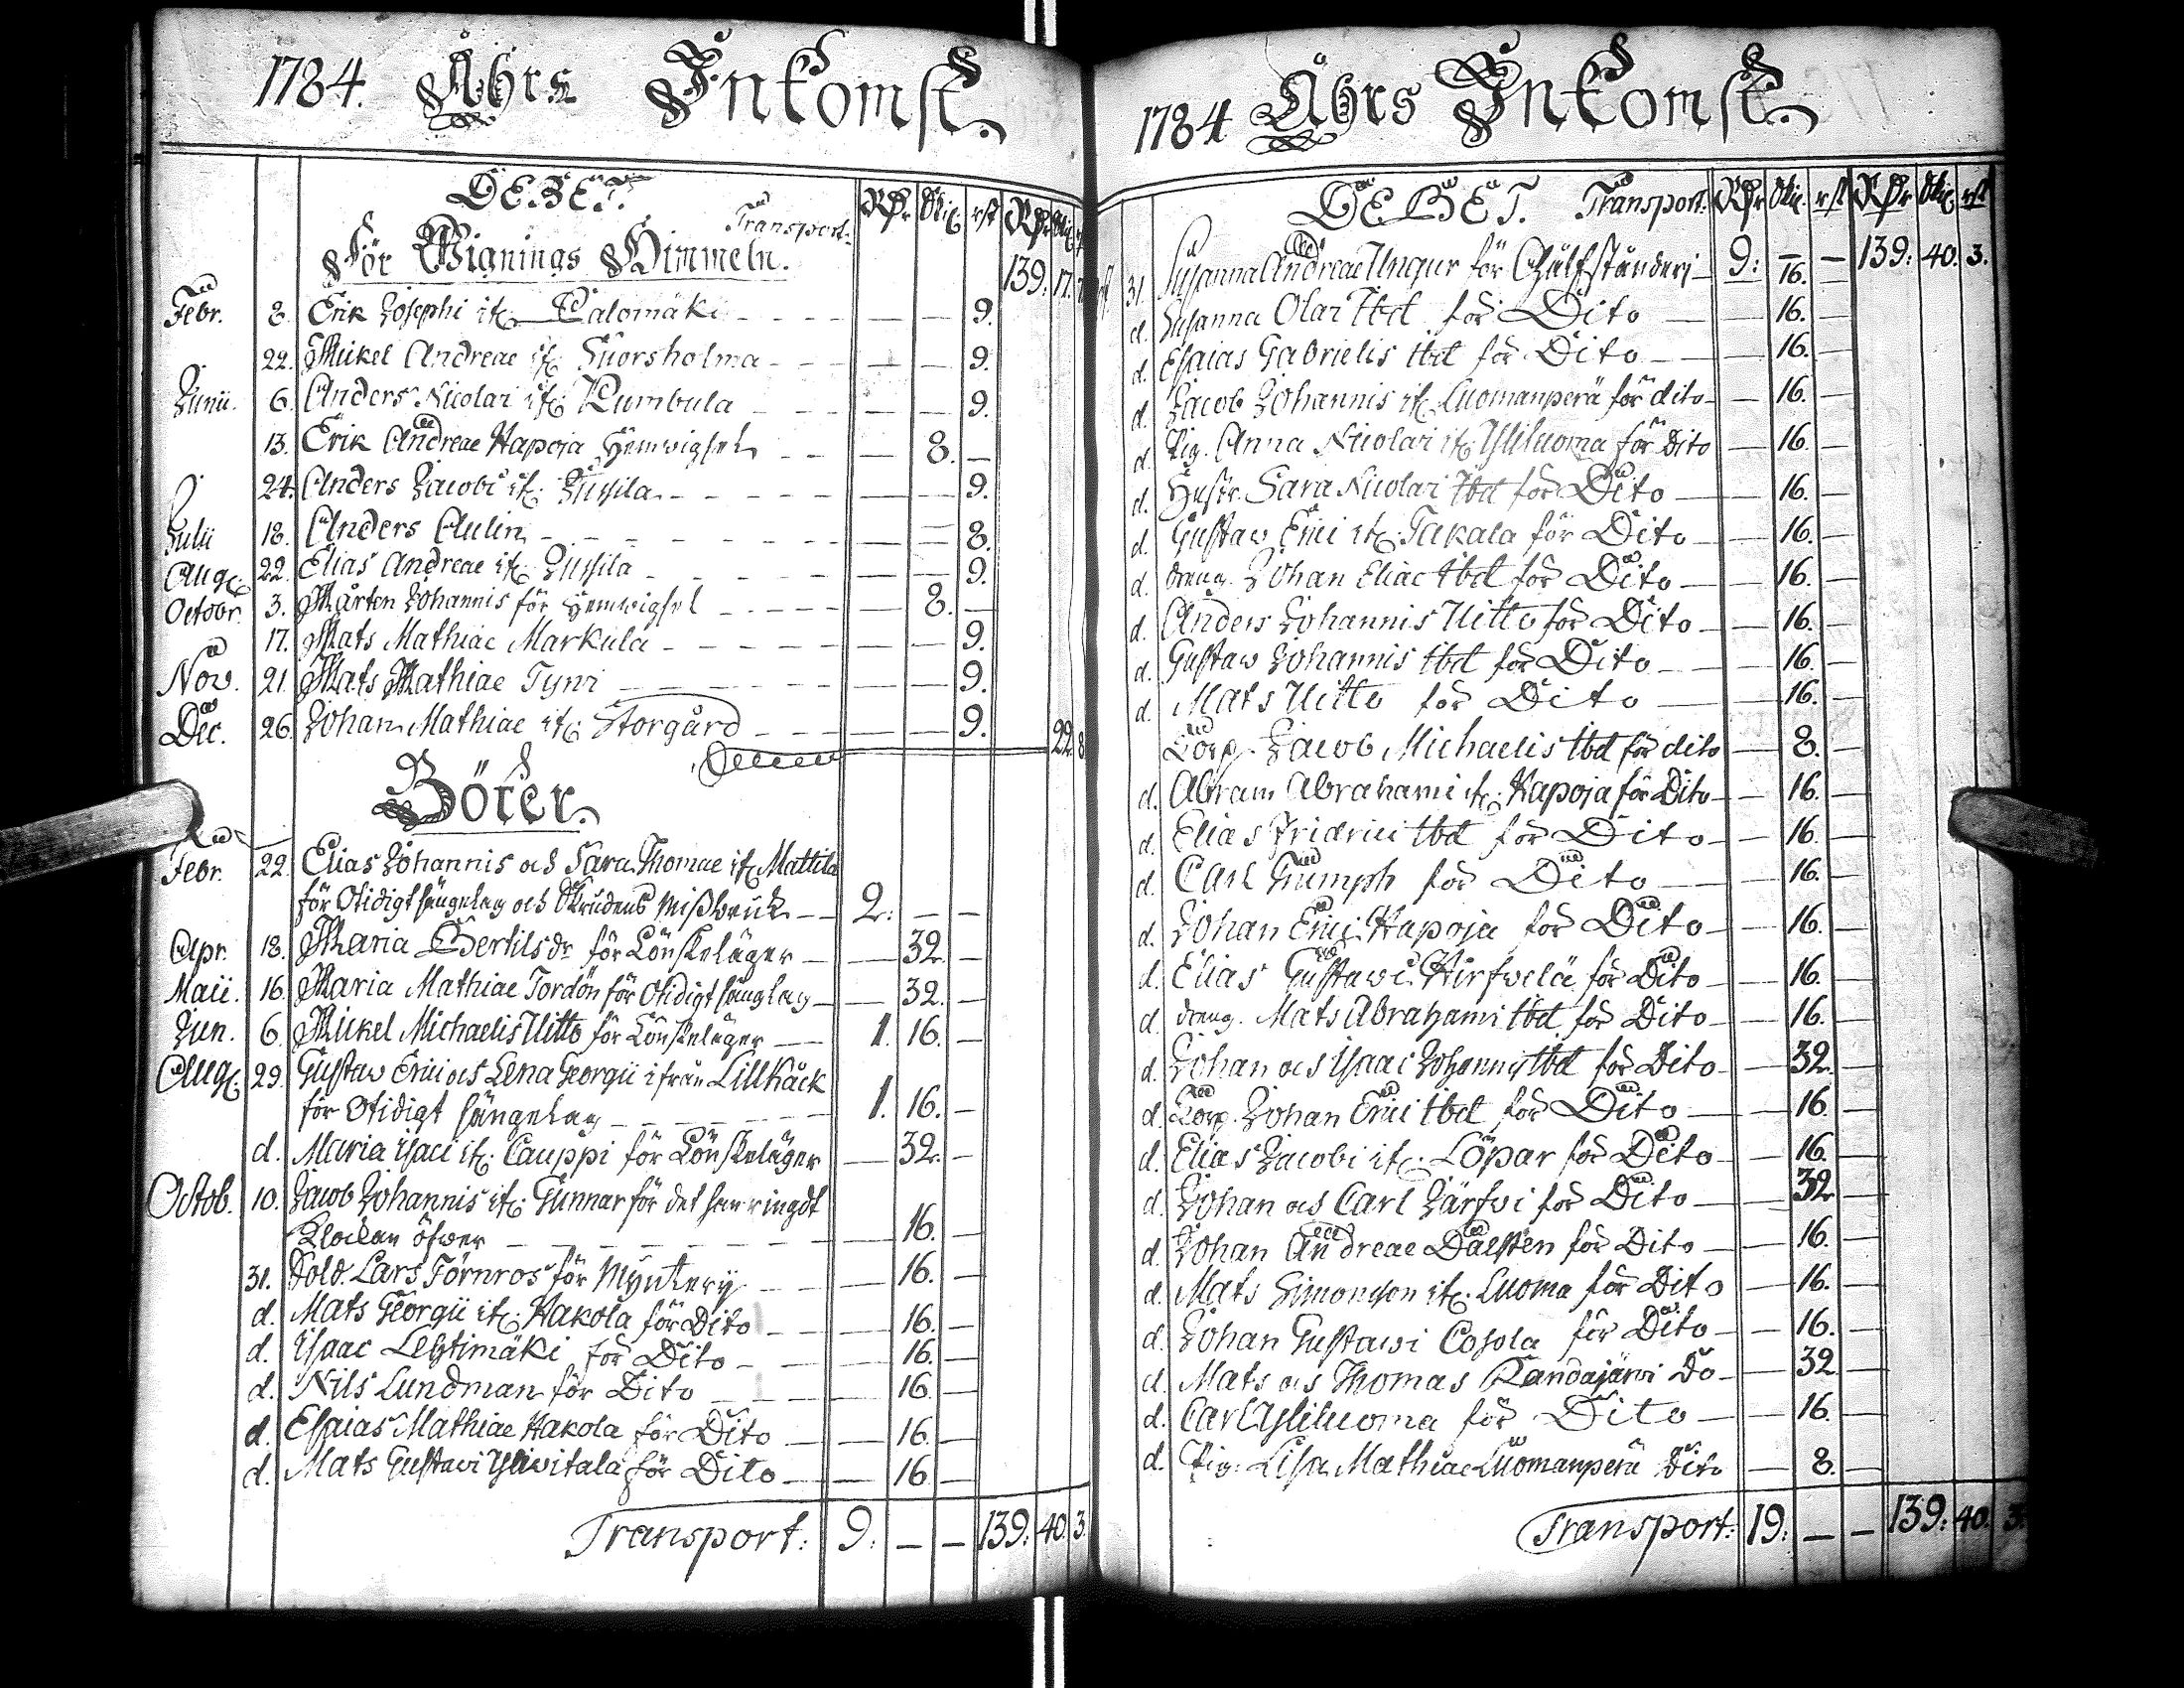 1784. Åhrs Inkomst.
DEBET. Transport: RDr Skil. rst RDr Skil. rst
För Wignings Himmeln. 139. 17.
Febr. 8. Erik Josephi if. Palomäki - - - 9.
22. Mickel Andreae if. Kuorsholma - - - 9.
Junii. 6. Anders Nicolai if. Kumbula - - - 9.
13. Erik Andreae Hapoja Hemwigsel - - 8. -
24. Anders Jacobi if. Jussila - - - 9.
Julii 18. Anders Aulin - - - 8.
Aug. 22. Elias Andreae if. Jussila - - - 9.
Octobr. 3. Mårten Johannis för Hemwigsel - - 8. -
17. Mats Mathiae Markula - - - 9.
Nov. 21. Mats Mathiae Tyni - - - 9.
Dec. 26. Johan Mathiae if. Storgård - - - 9. 22. 8
Böter.
Febr. 22. Elias Johannis och Sara Thomae if. Mattila
för Otidigt sängelag och Skrudens Mißbruk - - 2. - -
Apr. 18. Maria Bertilsdr för Lönskeläger - - 32. -
Maii. 16. Maria Mathiae Tordön för Otidigt sänglag - - 32. -
Jun. 6. Mickel Michaelis Uitto för Lönskeläger - 1. 16. -
Aug. 29. Gustav Erici och Lena Georgii ifrån Lillkåck
för Otidigt sängelag - - - 1. 16. -
d. Maria Isaci if. Cauppi för Lönskeläger - 32. -
Octob. 10. Jacob Johannis if. Gunnar för det han ringdt
Klockan öfwer - - - 16. -
31. Sold. Lars Törnros för Myntery - - 16. -
d. Mats Georgii if. Hakola för Dito - - 16. -
d. Isaac Lehtimäki för Dito - - 16. -
d. Nils Lundman för Dito - - 16. -
d. Esaias Mathiae Hakola för Dito - - 16. -
d. Mats Gustavi Yliwitala för Dito - - 16. -
Transport: 9. - - 139. 40. 3.
1784 Åhrs Inkomst.
DEBET. Transport: RDr Skil. rst RDr Skil. rst
9. - - 139. 40. 3.
31. Susanna Andreae Ungur för - 16.
d. Susanna Olai Ibd för Dito - - 16. -
d. Esaias Gabrielis Ibd för Dito - - 16. -
d. Jacob Johannis if. Luomanperä för dito - - 16. -
d. Pig. Anna Nicolai if. Yliluoma för Dito - 16. -
d. Hustr. Sara Nicolai Ibd för Dito - - 16. -
d. Gustaw Erici if. Takala för Dito - - 16. -
d. dräng. Johan Eliae Ibd för Dito - - 16. -
d. Anders Johannis Uitto för Dito - - 16. -
d. Gustaw Johannis Ibd för Dito - - 16. -
d. Mats Uitto för Dito - - 16. -
Corp. Jacob Michaelis Ibd för dito - 8. -
d. Abram Abrahami if. Hapoja för Dito - - 16. -
d. Elias Fridrici Ibd för Dito - - 16. -
d. Carl Triumph för Dito - - 16. -
d. Johan Erici Hapoja för Dito - - 16. -
d. Elias Gustavi Hirfvelä för Dito - - 16. -
d. dräng. Mats Abrahami Ibd för Dito - - 16. -
d. Johan och Isaac Johannis Ibd för Dito - - 32. -
d. Corp. Johan Erici Ibd för Dito - - 16. -
d. Elias Jacobi if. Löpar för Dito - - 16. -
d. Johan och Carl Järfvi för Dito - - 32 -
d. Johan Andreae Dalsten för Dito - - 16. -
d. Mats Simonson if. Luoma för Dito - - 16. -
d. Johan Gustawi Cosola för Dito - - 16. -
d. Mats och Thomas Randajärwi Do - - 32 -
d. Carl Yliluoma för Dito - - 16. -
d. Pig: Lisa Mathiae Luomanperä Dito - 8. -
Transport: 19. - - 139. 40. 3.